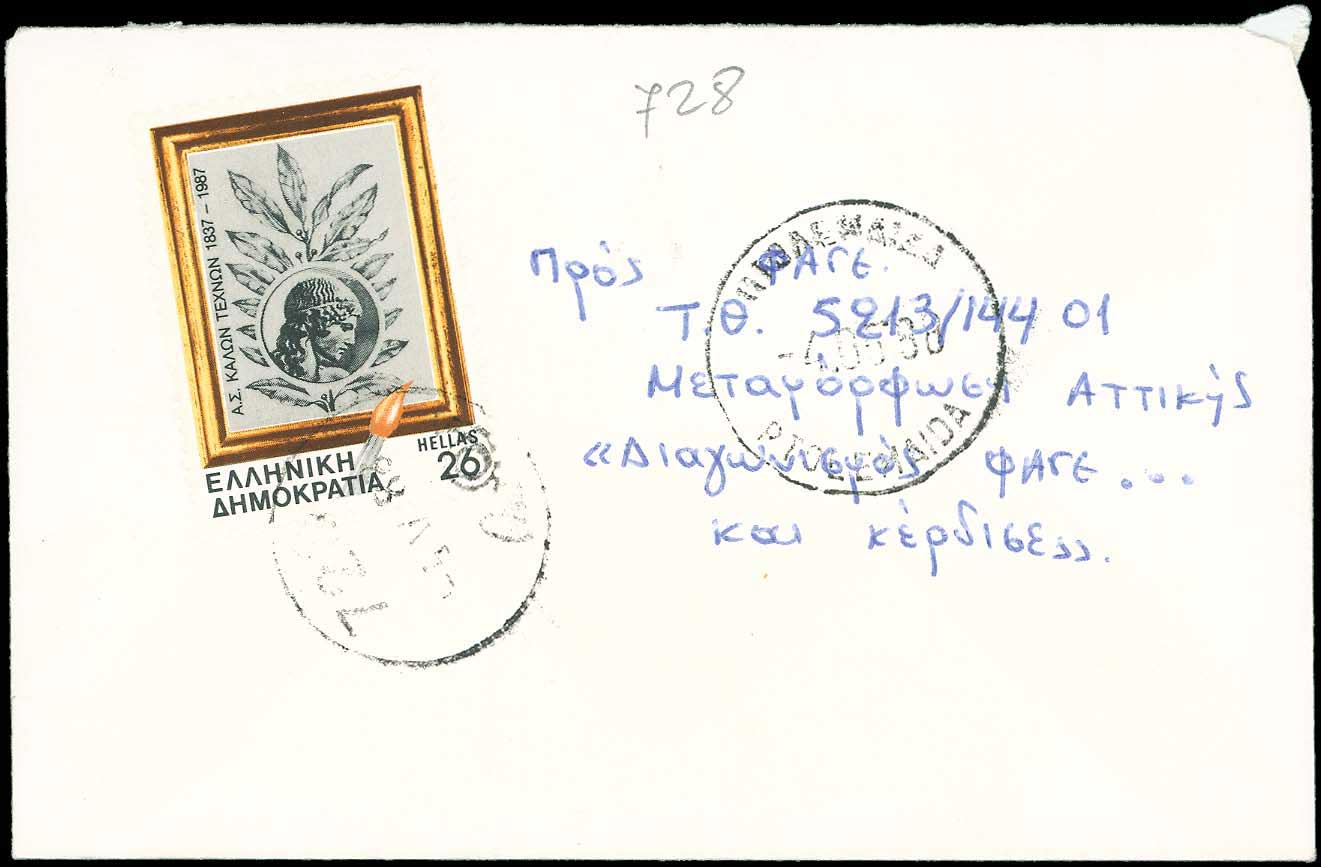 728
Α.Σ. ΚΑΛΩΝ ΤΕΧΝΩΝ 1837 - 1987
HELLAS
26
ΕΛΛΗΝΙΚΗ
ΔΗΜΟΚΡΑΤΙΑ
ΠΤΟΛΕΜΑΙΔΑ
PTOLEMAIDA
Πρός ΦΑΓΕ.
Τ.Θ. 5213/144 01
Μεταμόρφωση Αττικής
«Διαγωνισμός ΦΑΓΕ...
και κέρδισε».